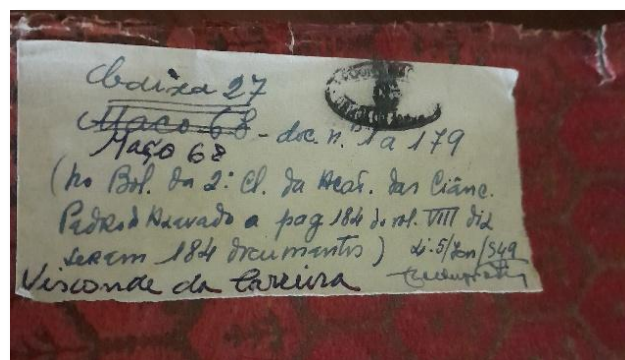 Caixa 27
Maço 68 - doc. n. 1 a 179
Maço 68
(no Bol. da 2ª Cl. da Acad. das Ciênc.
Pedro d'Azevedo a pag 184 do vol. VIII diz
serem 184 documentos) Li. 5/Jan/949
Visconde da Carreira